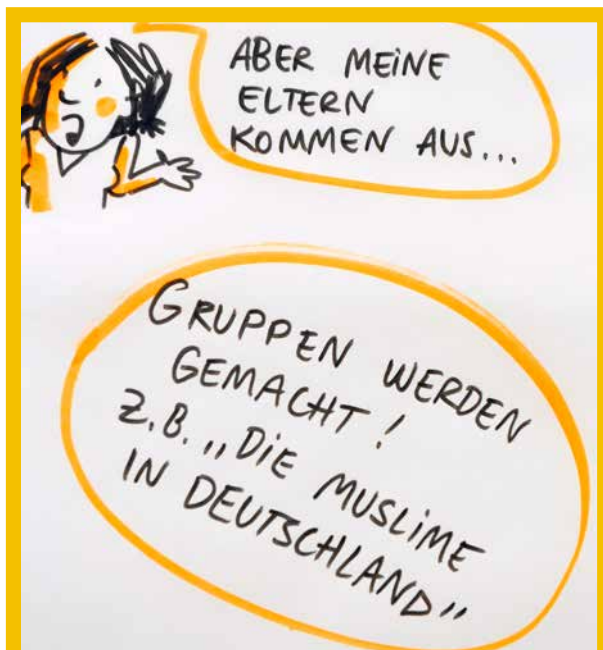 ABER MEINE
ELTERN
KOMMEN AUS...
GRUPPEN WERDEN
GEMACHT!
Z.B. „DIE MUSLIME
IN DEUTSCHLAND"